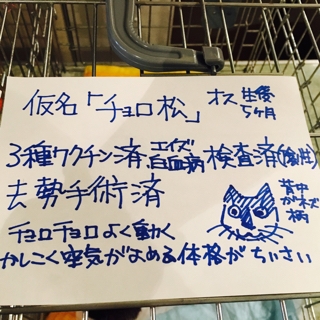 仮名「チョロ松」 オス 生後5ヶ月
3種ワクチン済 エイズ白血病 検査済(陰性)
去勢手術済
背中がキズ柄
チョロチョロよく動く
かしこく空気がよめる体格がちいさい